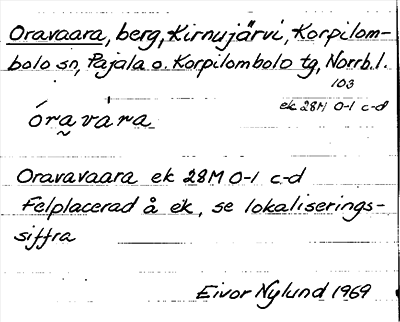 Oravaara, berg, Kirnujärvi, Korpilom-
bolo sn, Pajala o. Korpilombolo tg, Norrb. l.
103
ek 28M 0-1 c-d
óra̰vàra
Oravavaara ek 28M 0-1 c-d
Felplacerad å ek, se lokaliserings-
siffra
Eivor Nylund 1969